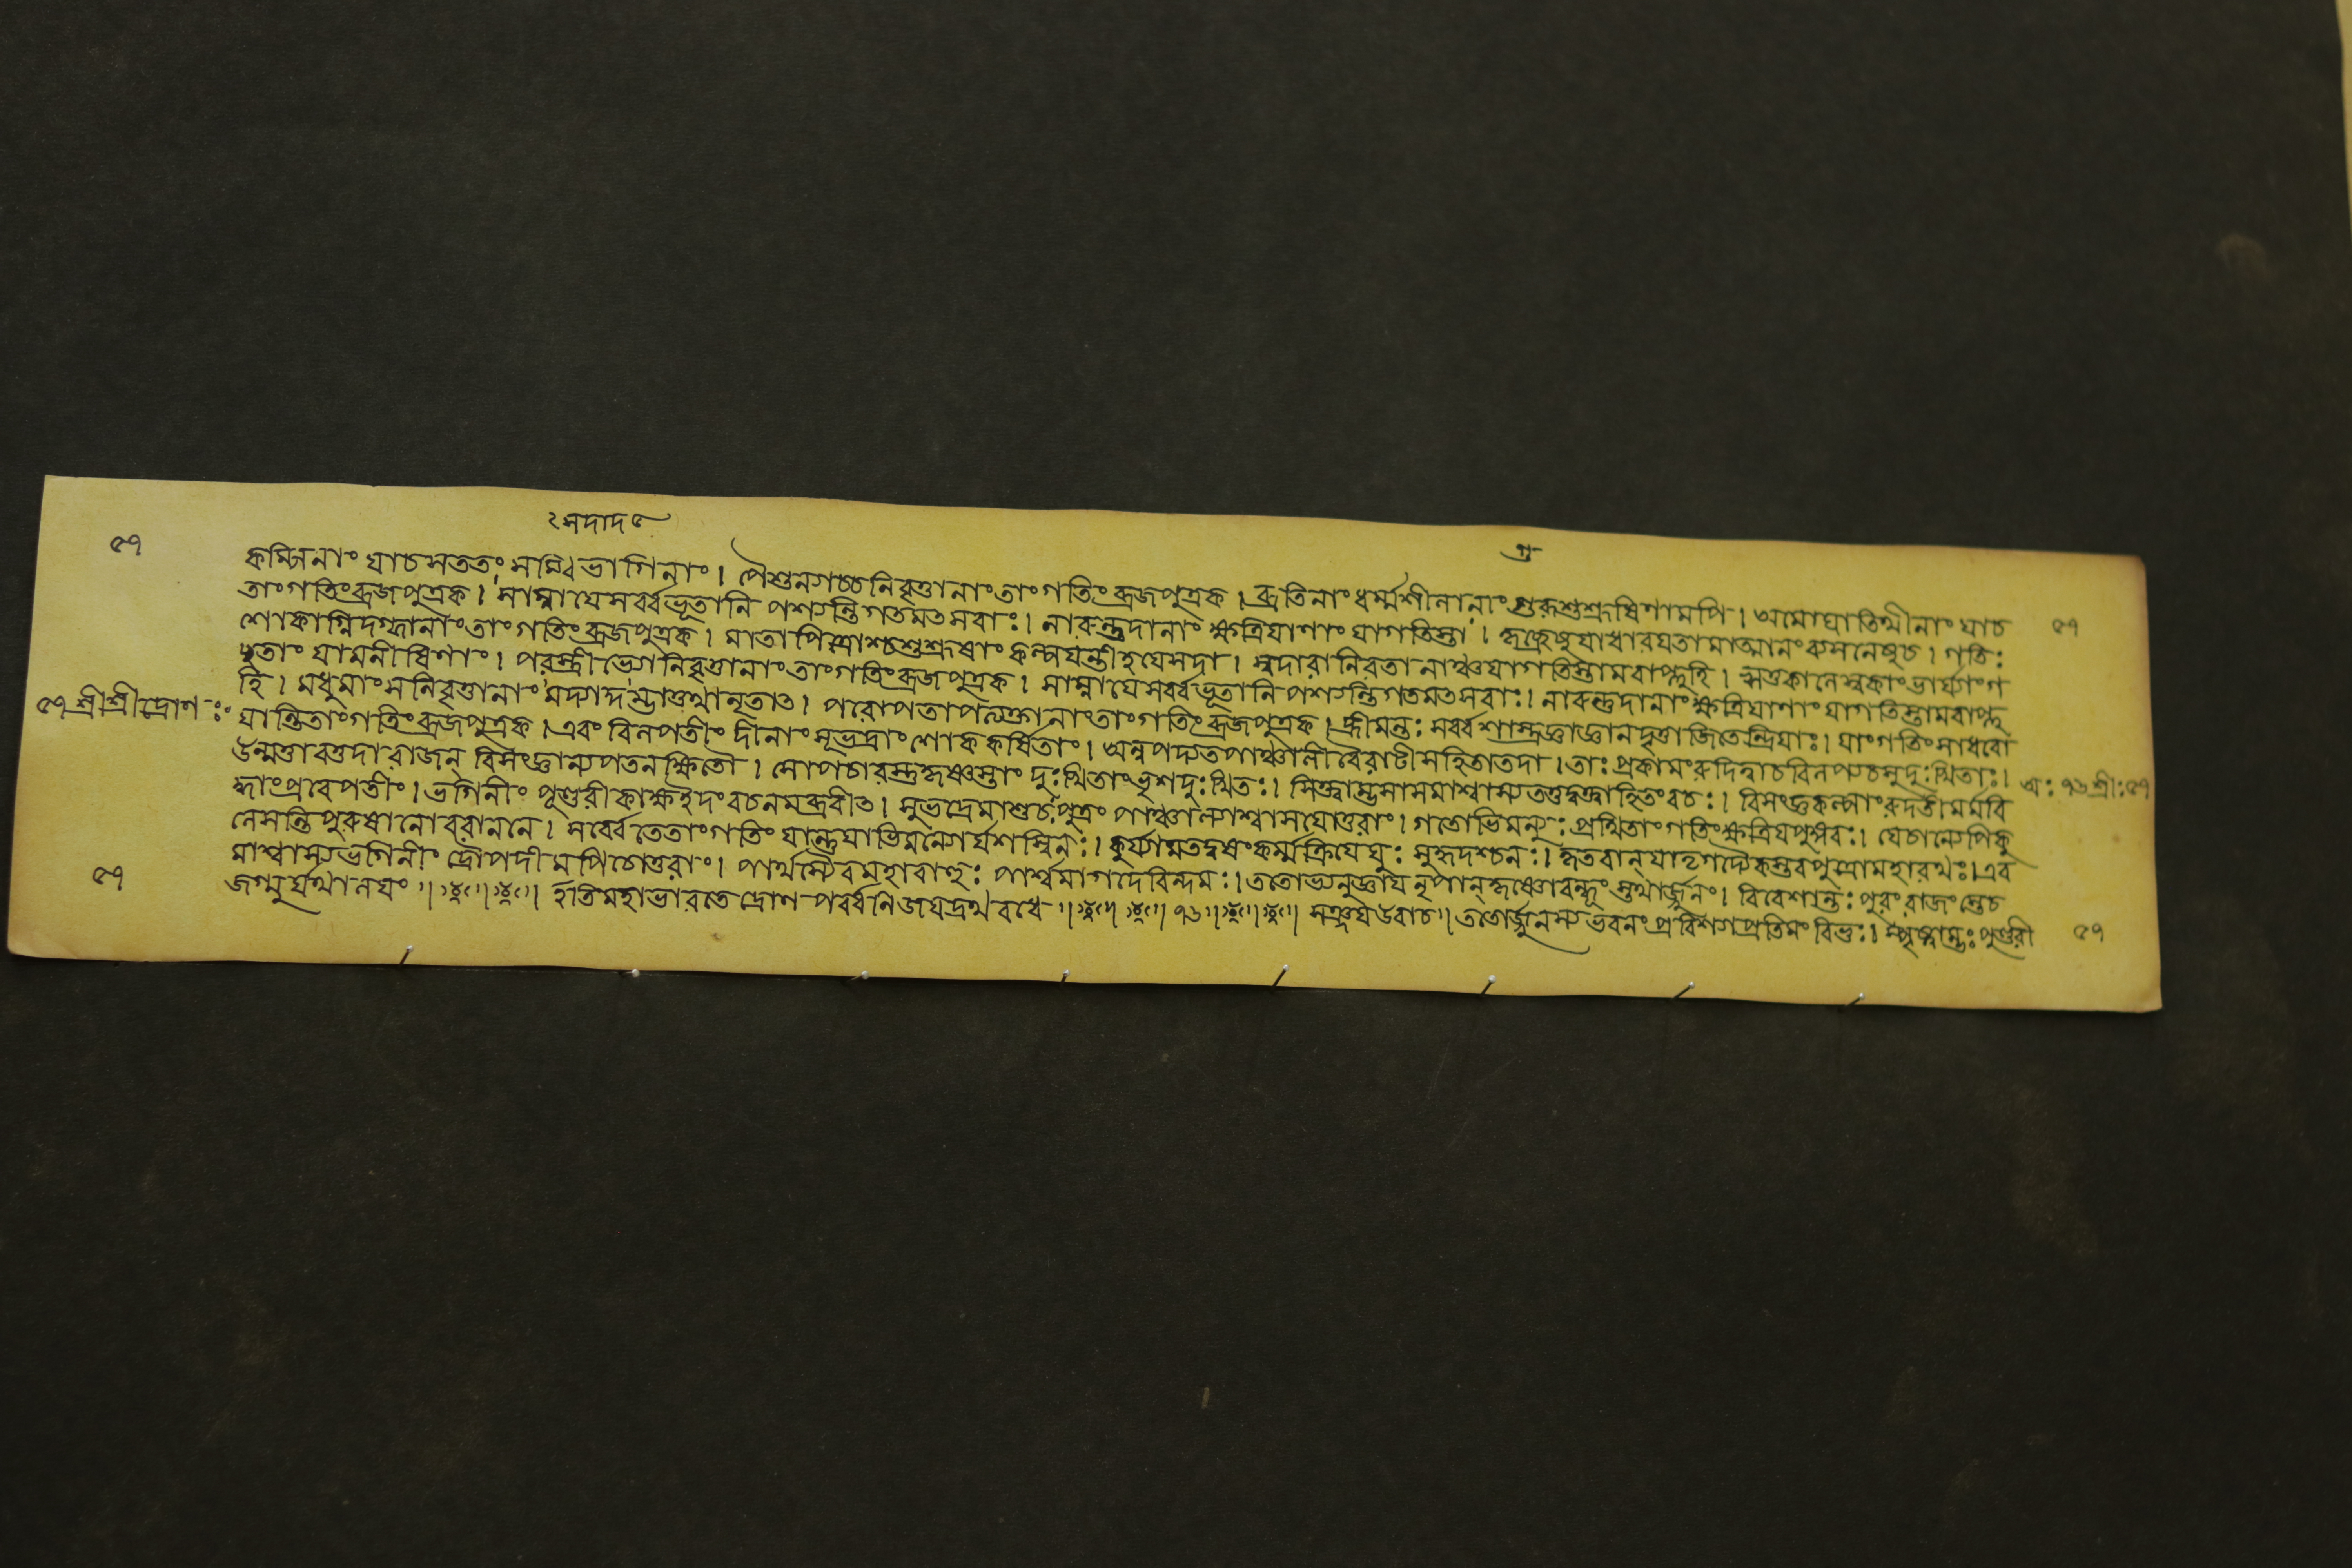 ৫৭
কম্পিনাং যাচ সততং সম্বিভাগিনাং। পৈশুন্যাচ্চ নিবৃত্তানাং তাং গতিং ব্রজপুত্রক। ব্রতিনাং ধর্ম্মশীলানাং গুরুশুশ্রূষিণামপি। অমোঘাতিথীনাং যাচ ৫৭
তাং গতিং ব্রজপুত্রক। সাম্না যে সর্ব্বভূতানি পশ্যন্তি গতমৎসরাঃ। নারুন্তুদানাং ক্ষত্রিয়াণাং যা গতিস্তা। কৃচ্ছ্রেষু যা ধারয়তামাত্মানং ব্যসনেষু চ। গতিঃ
শোকাগ্নিদগ্ধানাং তাং গতিং ব্রজপুত্রক। মাতাপিত্রোশ্চ শুশ্রূষাং কল্পয়ন্তীহ যে সদা। স্বদারনিরতানাঞ্চ যা গতিস্তামবাপ্নুহি। ঋতুকালে স্বকাং ভার্য্যাং গ
চ্ছতাং যা মনীষিণাং। পরস্ত্রীভ্যো নিবৃত্তানাং তাং গতিং ব্রজপুত্রক। সাম্না যে সর্ব্বভূতানি পশ্যন্তি গতমৎসরাঃ। নারুন্তুদানাং ক্ষত্রিয়াণাং যা গতিস্তামবাপ্নু
হি। মধুমাংসনিবৃত্তানাং মদ্যাদ্দম্ভাত্তথানৃতাৎ। পরোপতাপত্যক্তানাং তাং গতিং ব্রজপুত্রক। হ্রীমন্তঃ সর্ব্বশাস্ত্রজ্ঞা জ্ঞানতৃপ্তা জিতেন্দ্রিয়াঃ। যাং গতিং সাধবো
৫৭ শ্রীশ্রীদ্রোণঃ যান্তি তাং গতিং ব্রজপুত্রক। এবং বিলপতীং দীনাং সুভদ্রাং শোককর্ষিতাং। অন্বপদ্যত পাঞ্চালী বৈরাটীসহিতা তদা। তাঃ প্রকামং রুদিত্বা চ বিলপ্য চ সুদুঃখিতাঃ। অঃ ৭৬ শ্রীঃ ৫৭
উন্মত্তাবত্তদা রাজন্ বিসংজ্ঞা ন্যপতন ক্ষিতৌ। সোপচারস্তু কৃষ্ণস্তাং দুঃখিতাং ভৃশদুঃখিতঃ। সিক্ত্বাম্ভসা সমাশ্বাস্য তত্তদুক্ত্বা হিতং বচঃ। বিসংজ্ঞকল্পাং রুদতী মর্মবি
দ্ধাং প্রবেপতীং। ভগিনীং পুণ্ডরীকাক্ষ ইদং বচনমব্রবীৎ। সুভদ্রে মা শুচঃ পুত্রং পাঞ্চাল্যাশ্বাসয়োত্তরাং। গতোভিমন্যুঃ প্রথিতাং গতিং ক্ষত্রিয়পুঙ্গবঃ। যে চান্যেপি কু
লে সন্তি পুরুষা নো বরাননে। সর্ব্বে তে তাং গতিং যান্তু যাভিমন্যোর্যশস্বিনঃ। কুর্য্যাম তদ্বয়ং কর্ম্ম ক্রিয়েয়ুঃ সুহৃদশ্চ নঃ। কৃতবান্ যাদৃগদ্যৈকস্তব পুত্রো মহারথঃ। এব
মাশ্বাস্য ভগিনীং দ্রৌপদীমপি চোত্তরাং। পার্থস্যৈব মহাবাহুঃ পার্শ্বমাগাদরিন্দমঃ। ততোভ্যনুজ্ঞায় নৃপান্ কৃষ্ণো বন্ধূং স্তথার্জ্জুনং। বিবেশান্তঃ পুরং রাজং স্তে চ
৫৭ জগ্মুর্যথালয়ং ॥ ইতি মহাভারতে দ্রোণ পর্ব্বনি জয়দ্রথ বধে ॥ ৭৬ ॥ সঞ্জয় উবাচ। ততোর্জ্জুনস্য ভবনং প্রবিশ্যাপ্রতিমং বিভুঃ। স্পৃষ্ট্বাম্ভঃ পুণ্ডরী ৫৭